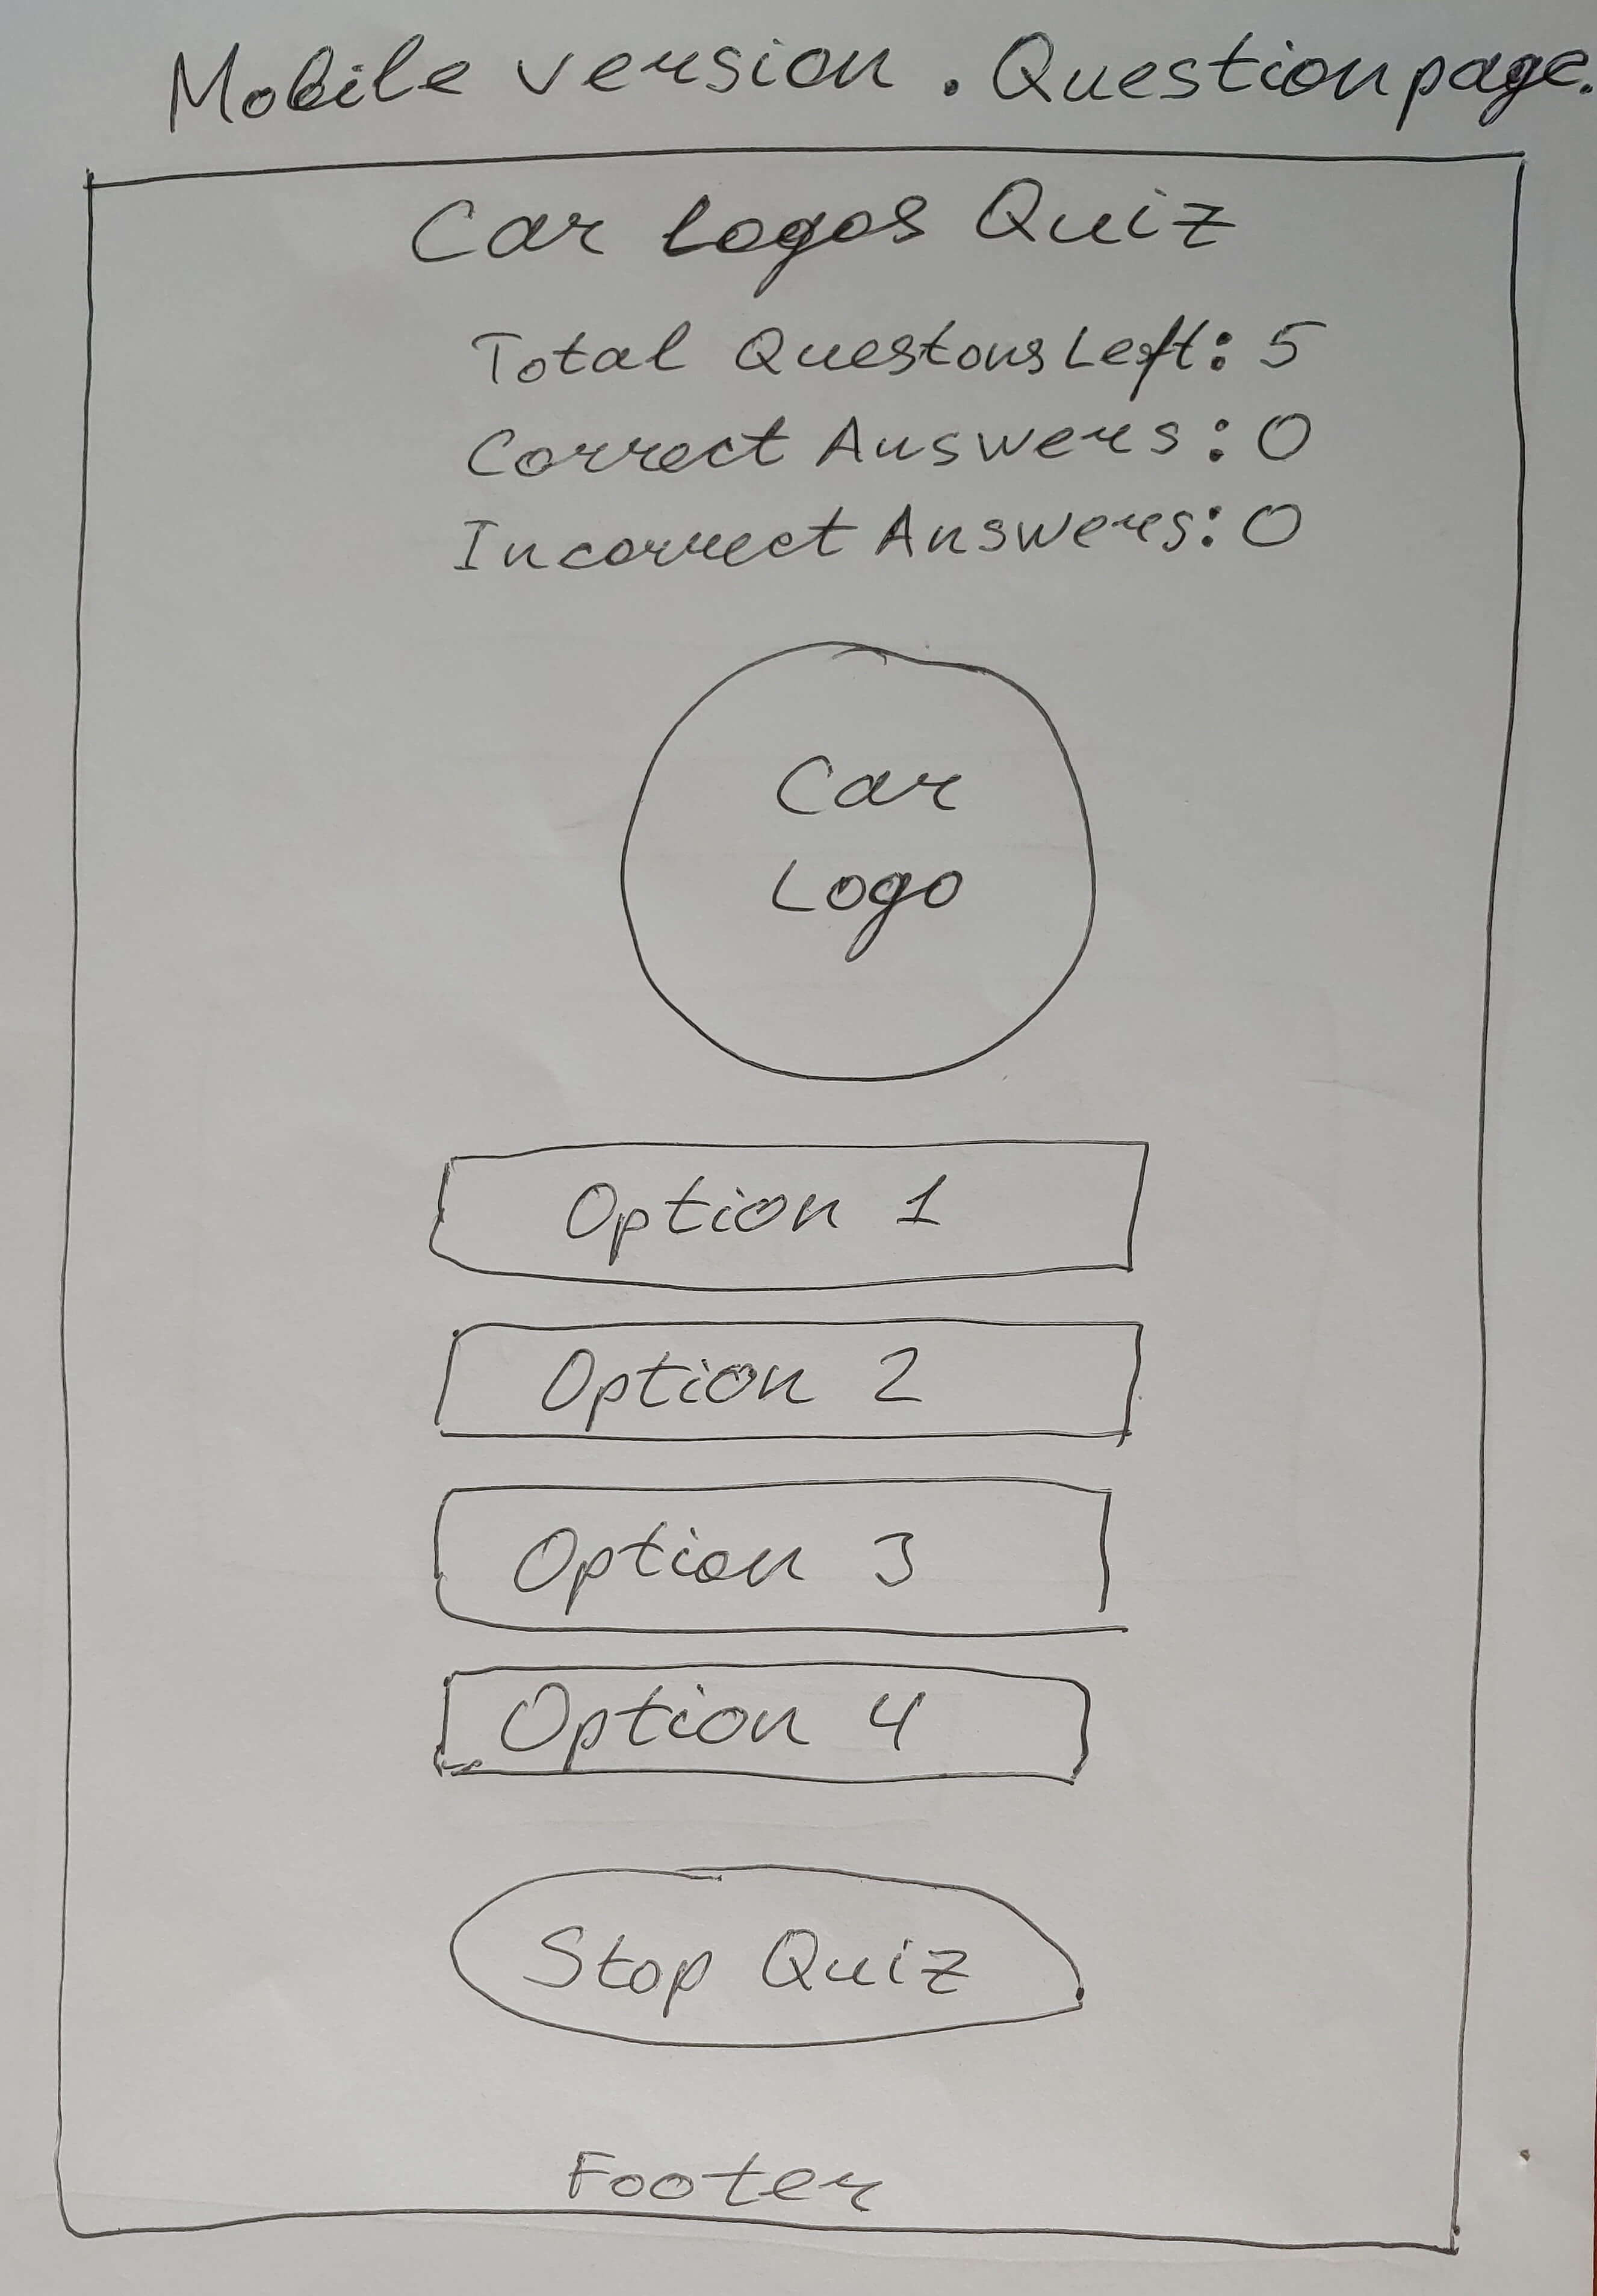 Mobile version. Question page.
Car Logos Quiz
Total Questons Left: 5
Correct Answers: 0
Incorrect Answers: 0
Car
Logo
Option 1
Option 2
Option 3
Option 4
Stop Quiz
Footer